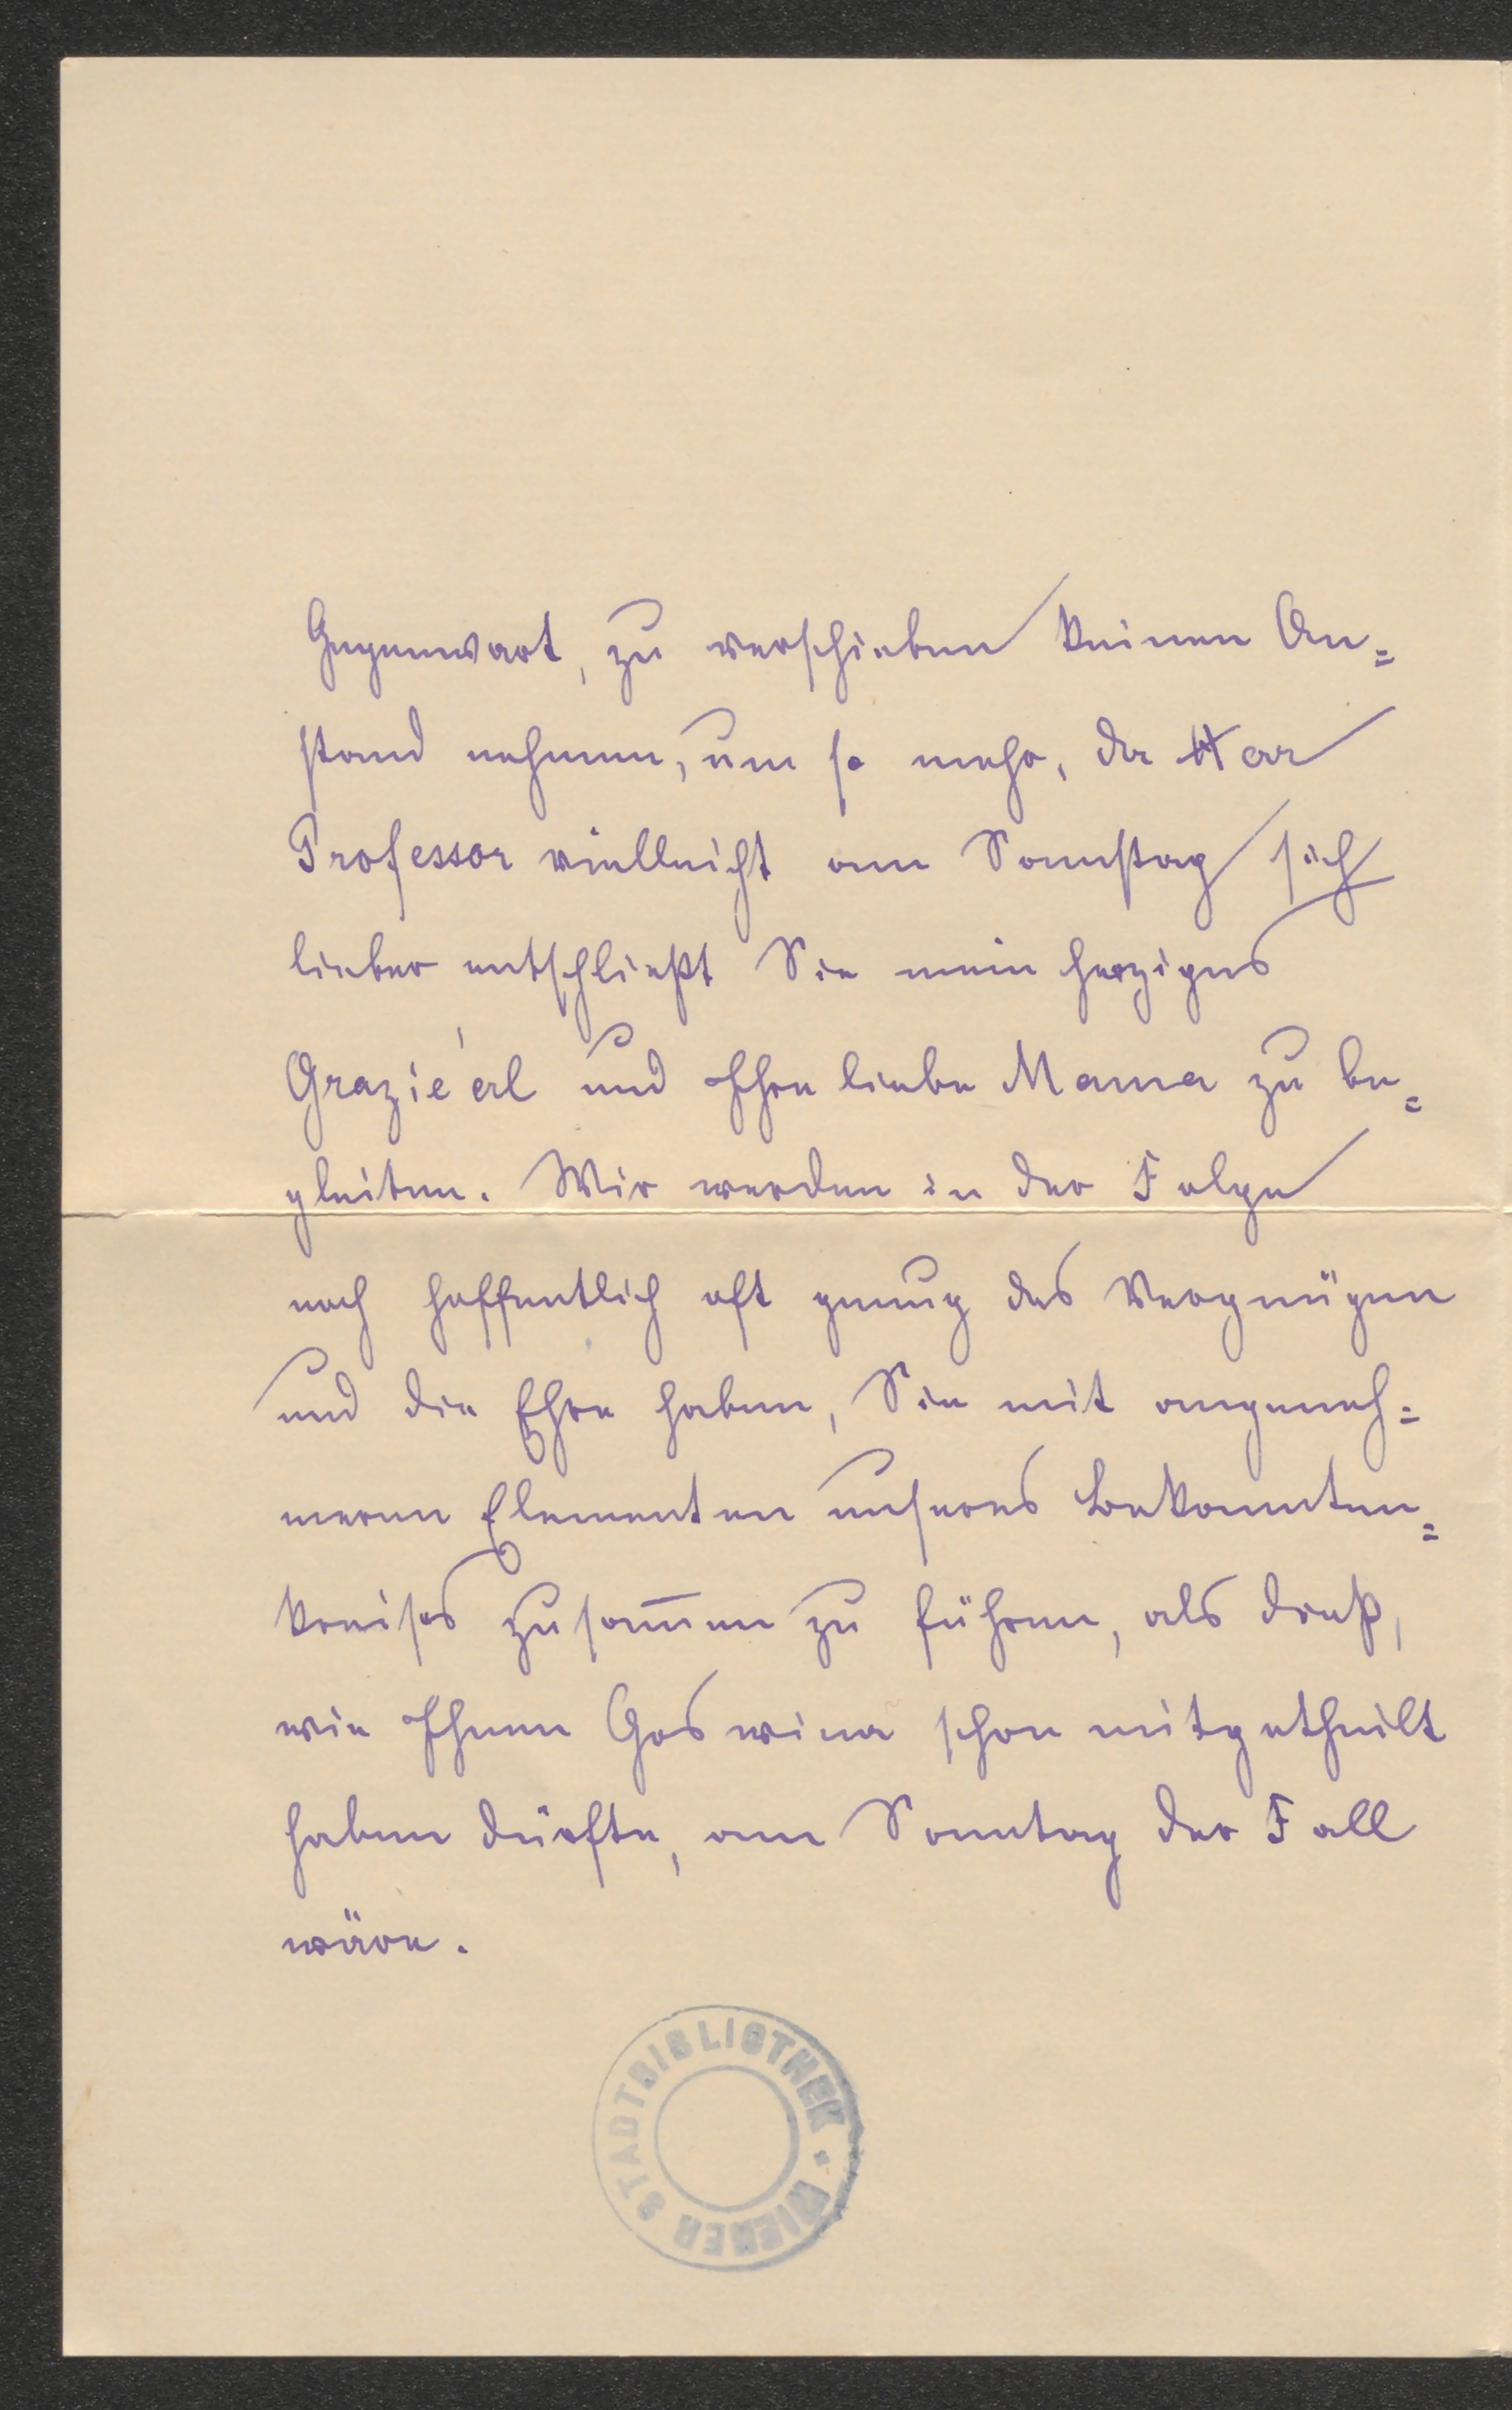 Gegenwart, zu verschieben keinen An=
stand nehmen, um so mehr, da Har
Professor vielleicht am Samstag sich
lieber entschließt Sie mein herziges
Grazie'erl und Ihre liebe Mama zu be=
gleiten. Wir werden in der Folge
noch hoffentlich oft genug das Vergnügen
und die Ehre haben, Sie mit angeneh=
meren Elementen unseres Bekannten=
kreises zusam̅en zu führen, als dieß,
wie Ihnen Goswina schon mitgetheilt
haben dürfte, am Sonntag der Fall
wäre.
WIENER STADTBIBLIOTHEK